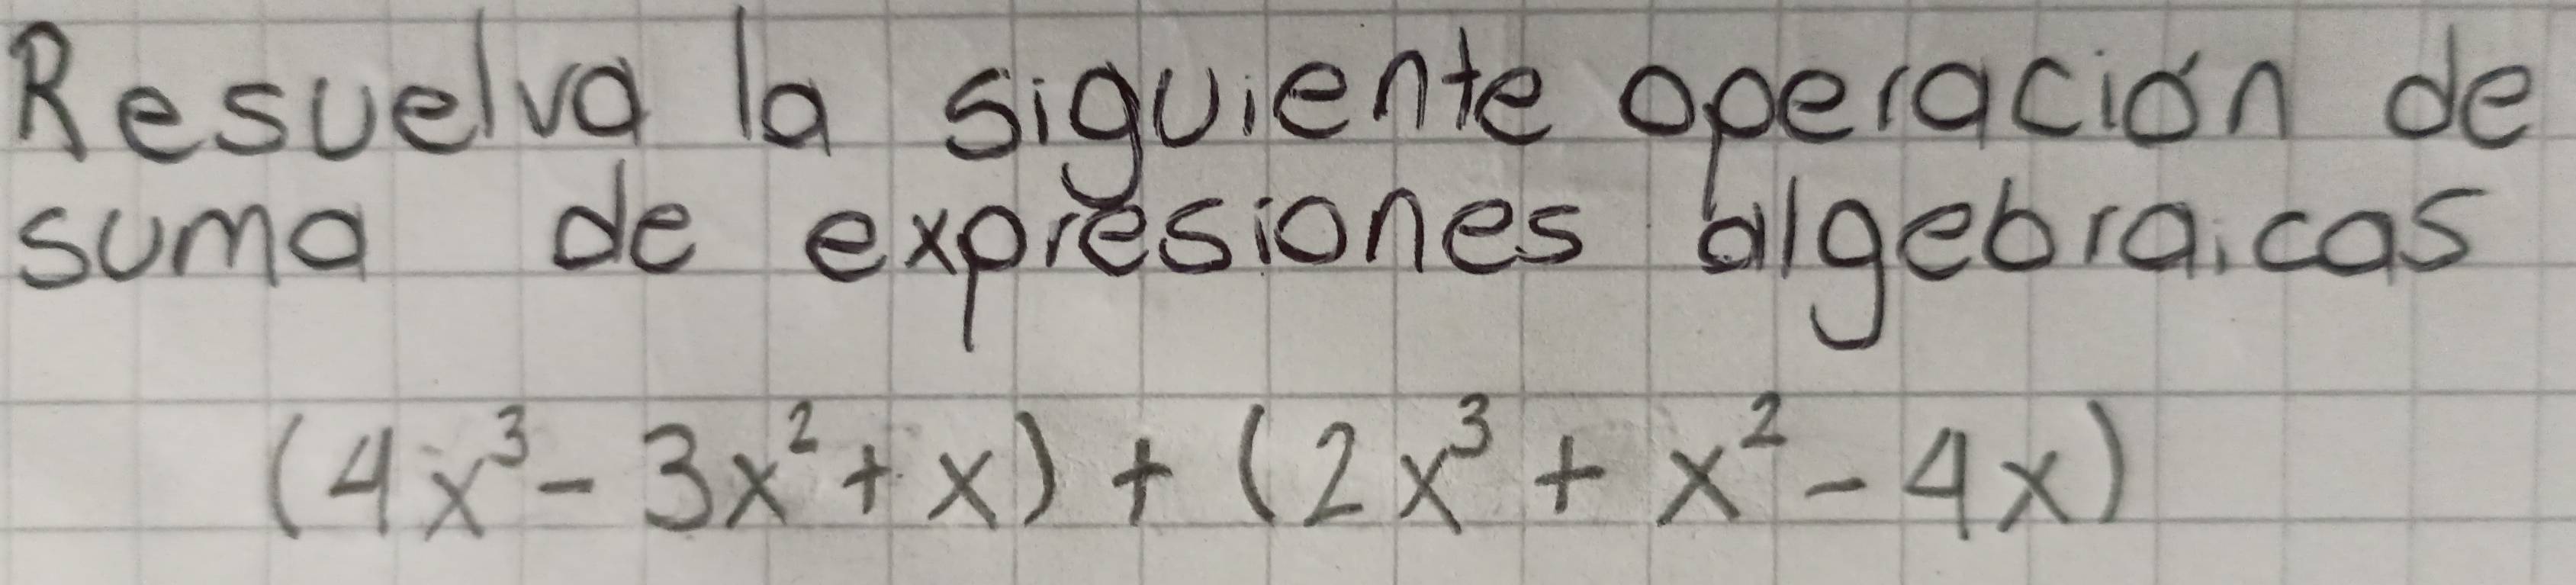 Resuelva la siguiente operación de
suma de expresiones algebraicas
(4x³ - 3x² + x) + (2x³ + x² - 4x)